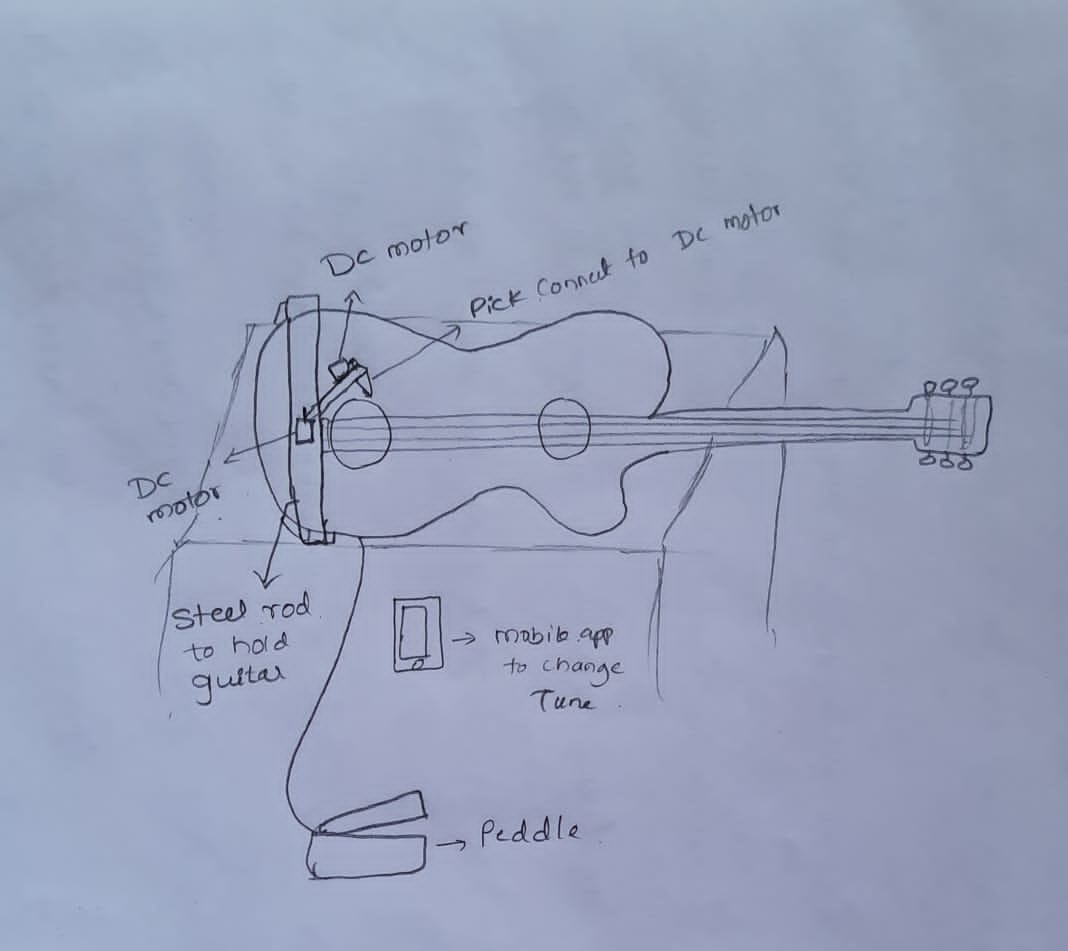 DC motor
Pick Connect to DC motor
DC
motor
Steel rod
to hold
guitar
mobile app
to change
Tune
Peddle